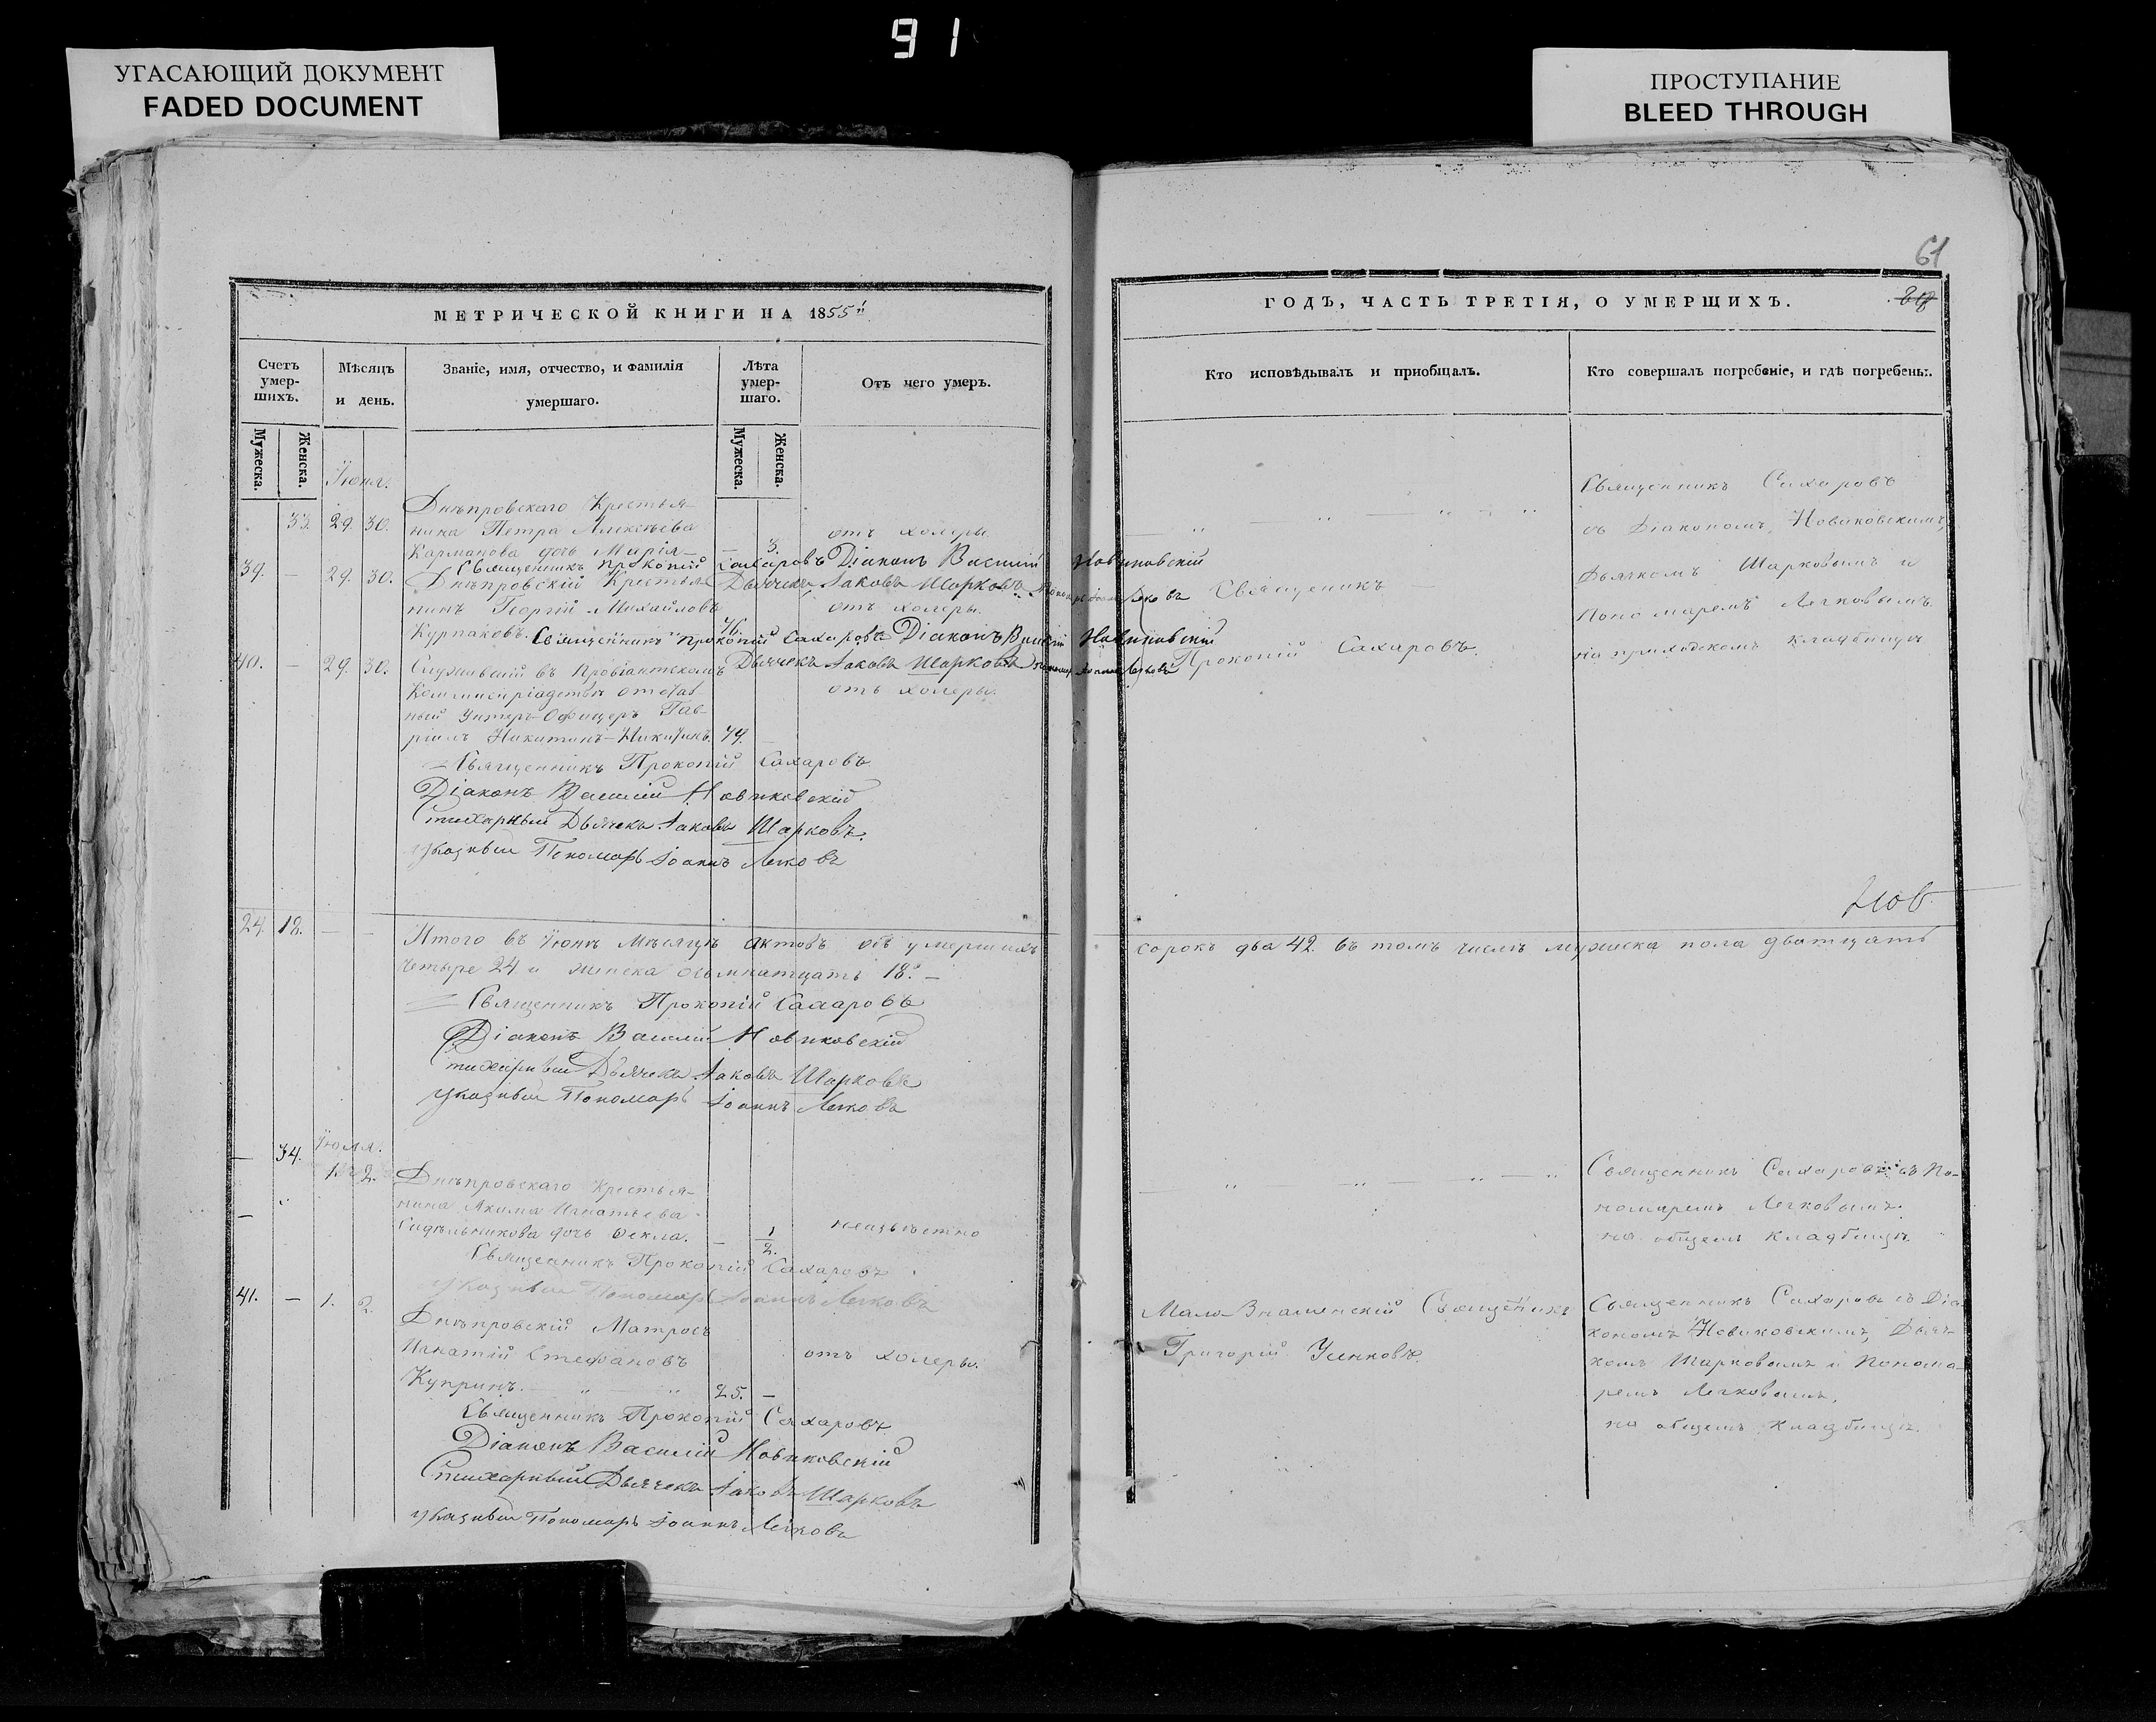 91
УГАСАЮЩИЙ ДОКУМЕНТ
FADED DOCUMENT
ПРОСТУПАНИЕ
BLEED THROUGH
61
МЕТРИЧЕСКОЙ КНИГИ НА 1855й
Счетъ умер-шихъ.
Мужеска.
Женска.
Мѣсяцъ и день.
Званіе, имя, отчество, и фамилія умершаго.
Лѣта умер-шаго.
Мужеска.
Женска.
Отъ чего умеръ.
Іюня.
33. 29. 30. Днѣпровскаго Крестья-
нина Петра Алексѣева
Карманова дочь Марія — 3. отъ холеры
Священникъ Прокопій Сахаровъ Діаконъ Василій Новиковскій
39. — 29. 30. Днѣпровскій Крестья- Дьячекъ Іаковъ Шарковъ
нинъ Георгій Михайловъ отъ холеры.
Курпаковъ. Священникъ Прокопій Сахаровъ Діаконъ Василій Новиковскій
40. — 29. 30. Служившій въ Провіантскомъ Дьячекъ Іаковъ Шарковъ
отстав- отъ холеры.
ный Унтеръ-Офицеръ Гав-
ріилъ Никитинъ Никитинъ. 49. —
Священникъ Прокопій Сахаровъ
Діаконъ Василій Новиковскій
Стихарный Дьячекъ Іаковъ Шарковъ.
указный Пономарь Іоаннъ Легковъ
24. 18. — — Итого въ Іюнѣ Мѣсяцѣ актовъ объ умершихъ
четыре 24 и женска осьмнатцать 18. —
Священникъ Прокопій Сахаровъ
Діаконъ Василій Новиковскій
Стихарный Дьячекъ Іаковъ Шарковъ
указный Пономарь Іоаннъ Легковъ
Іюля.
— 34. 1. 2. Днѣпровскаго Крестья-
нина Якима Игнатьева
Сидѣльникова дочь Фекла. — 1/2. неизвѣстно
Священникъ Прокопій Сахаровъ
указный Пономарь Іоаннъ Легковъ
41. — 1. 2. Днѣпровскій Матросъ
Игнатій Стефановъ отъ холеры.
Купринъ. 25. —
Священникъ Прокопій Сахаровъ
Діаконъ Василій Новиковскій
Стихарный Дьячекъ Іаковъ Шарковъ
указный Пономарь Іоаннъ Легковъ
ГОДЪ, ЧАСТЬ ТРЕТІЯ, О УМЕРШИХЪ.
Кто исповѣдывалъ и приобщалъ.
Кто совершалъ погребеніе, и гдѣ погребены.
Священникъ
Прокопій Сахаровъ.
Священникъ Сахаровъ
съ Діакономъ Новиковскимъ,
Дьячкомъ Шарковымъ и
Пономаремъ Легковымъ
на приходскомъ кладбищѣ
сорокъ два 42. въ томъ числѣ мужеска пола дватцать
Священникъ Сахаровъ съ По-
номаремъ Легковымъ.
на общемъ кладбищѣ.
Мало-Знаменскій Священникъ
Григорій
Священникъ Сахаровъ съ Діа-
кономъ Новиковскимъ, Дьяч-
комъ Шарковымъ и Понома-
ремъ Легковымъ,
на общемъ кладбищѣ.